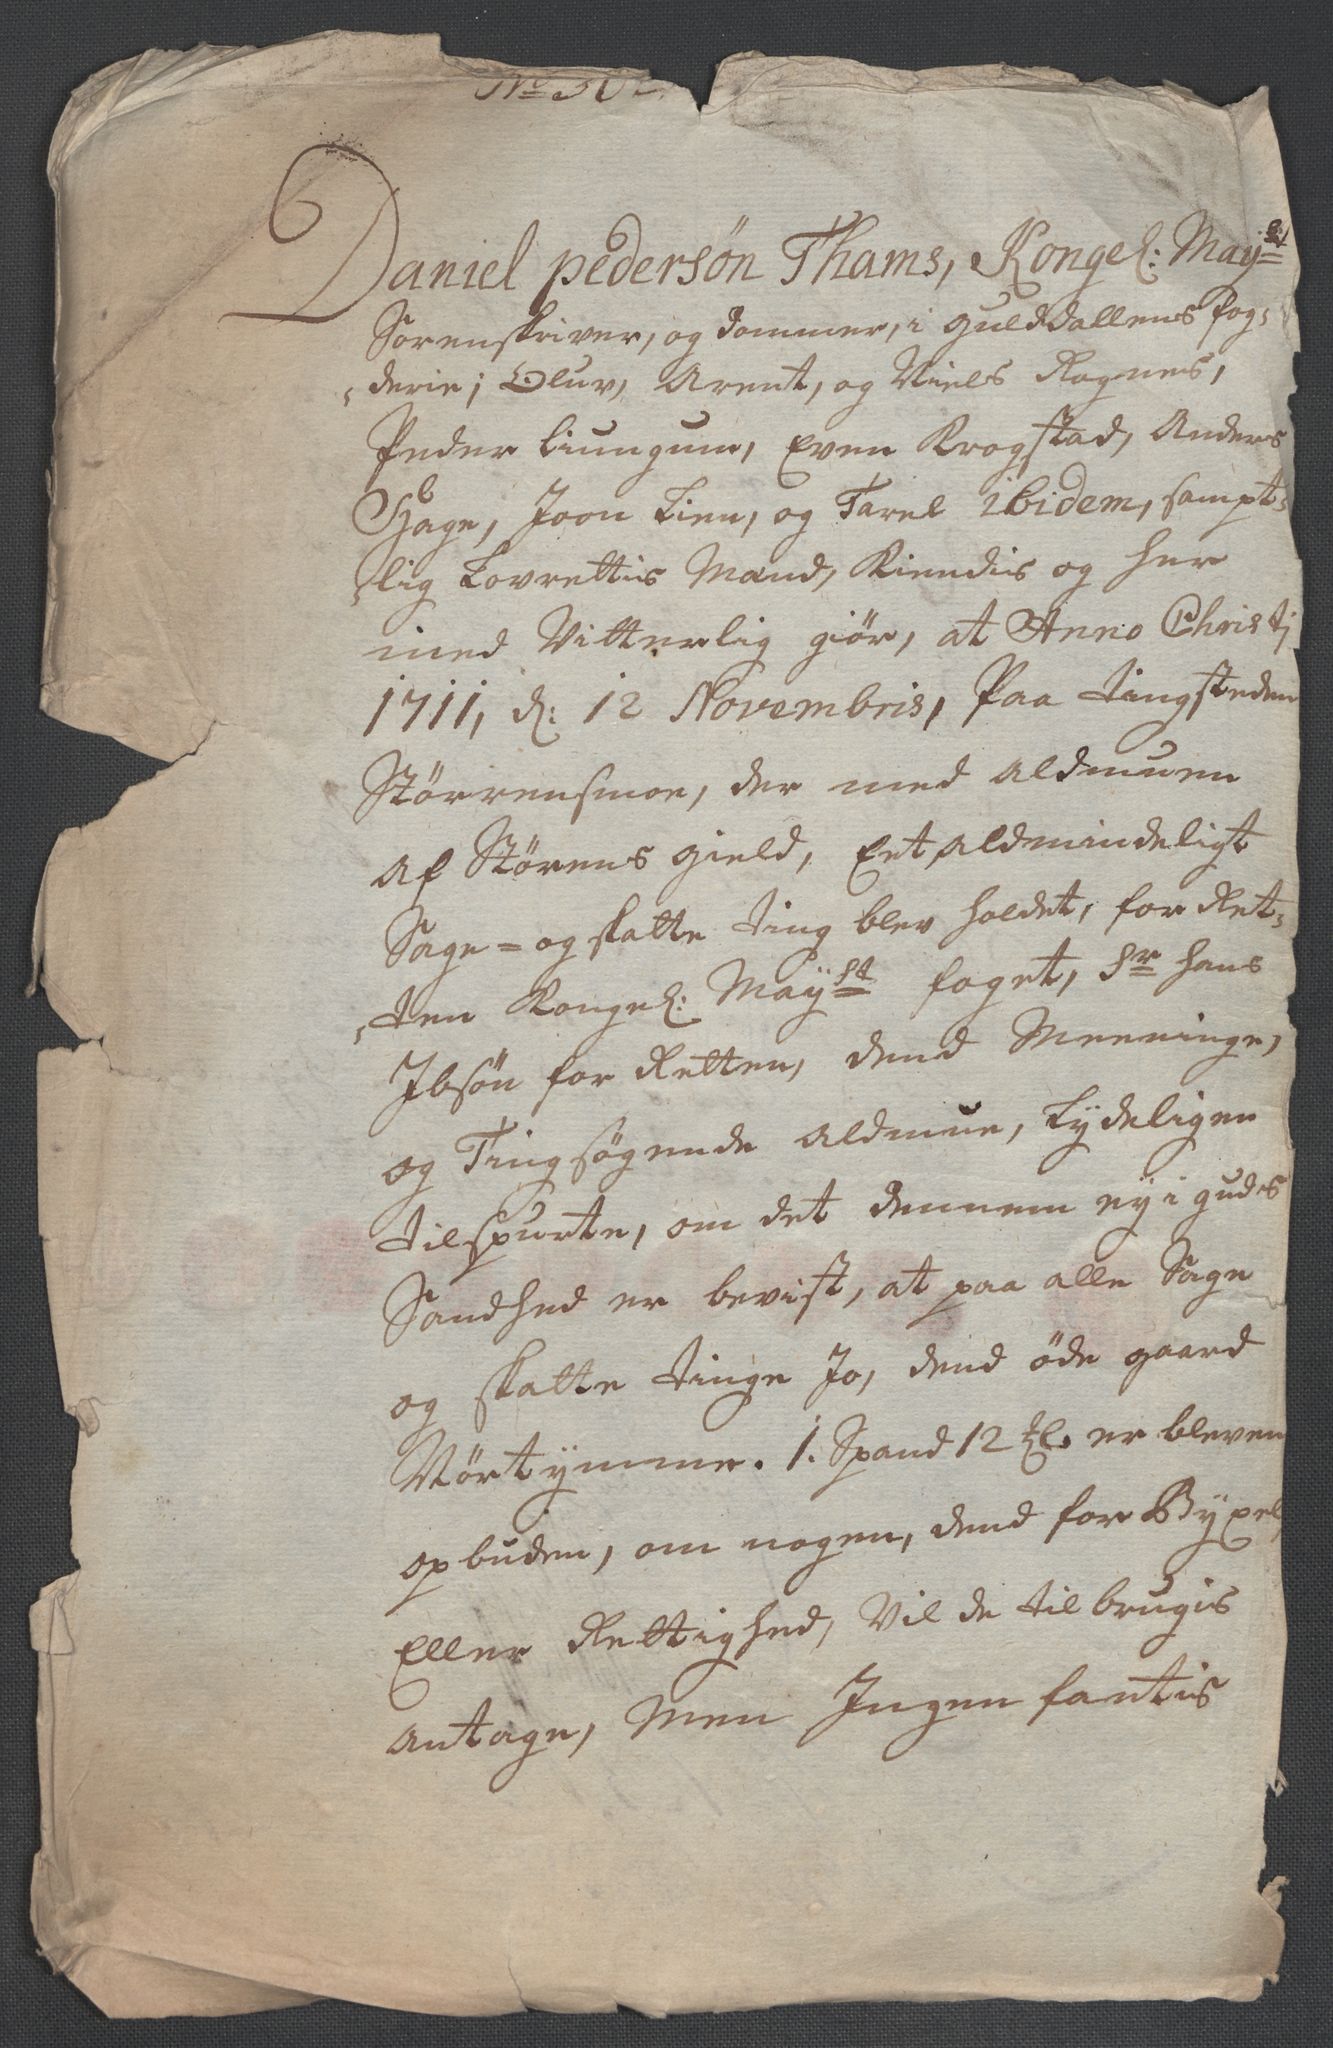 Daniel Pedersøn Thams, Kongel: May:
Sorenskriver, og Dommer, i Guldallens fog-
derie; Oluv, Arent, og Niels Rognes,
Peder Liungum, Even Krogstad, Anders
Hage, Joon Lien, og Tarel ibidem, sampt-
lig Lovrettis Mænd, Kiendis og her
med Vitterlig giør, at Anno Christj
1711, d: 12 Novembris, Paa tingsteden
Størrensmoe, der med Aldmuen
af Størens gield, Eet Aldmindeligt
Sage- og skatte ting blev holdet, for Ret-
ten Kongel: Mayst foget, Sr Hans
Ibsøn for Retten, dend Meeninge,
og Tingsøgende Aldmue, Lydeligen
tilspurte, om det dennem ey i guds
Sandhed er bevist, at paa alle Sage
og skatte tinge Jo, dend øde gaard
Vørtymme. 1. Spand 12 er bleven
opbuden, om nogen, dend for Byxel
Eller Rettighed, Vil de til brugis
Antage, Men Ingen fantis